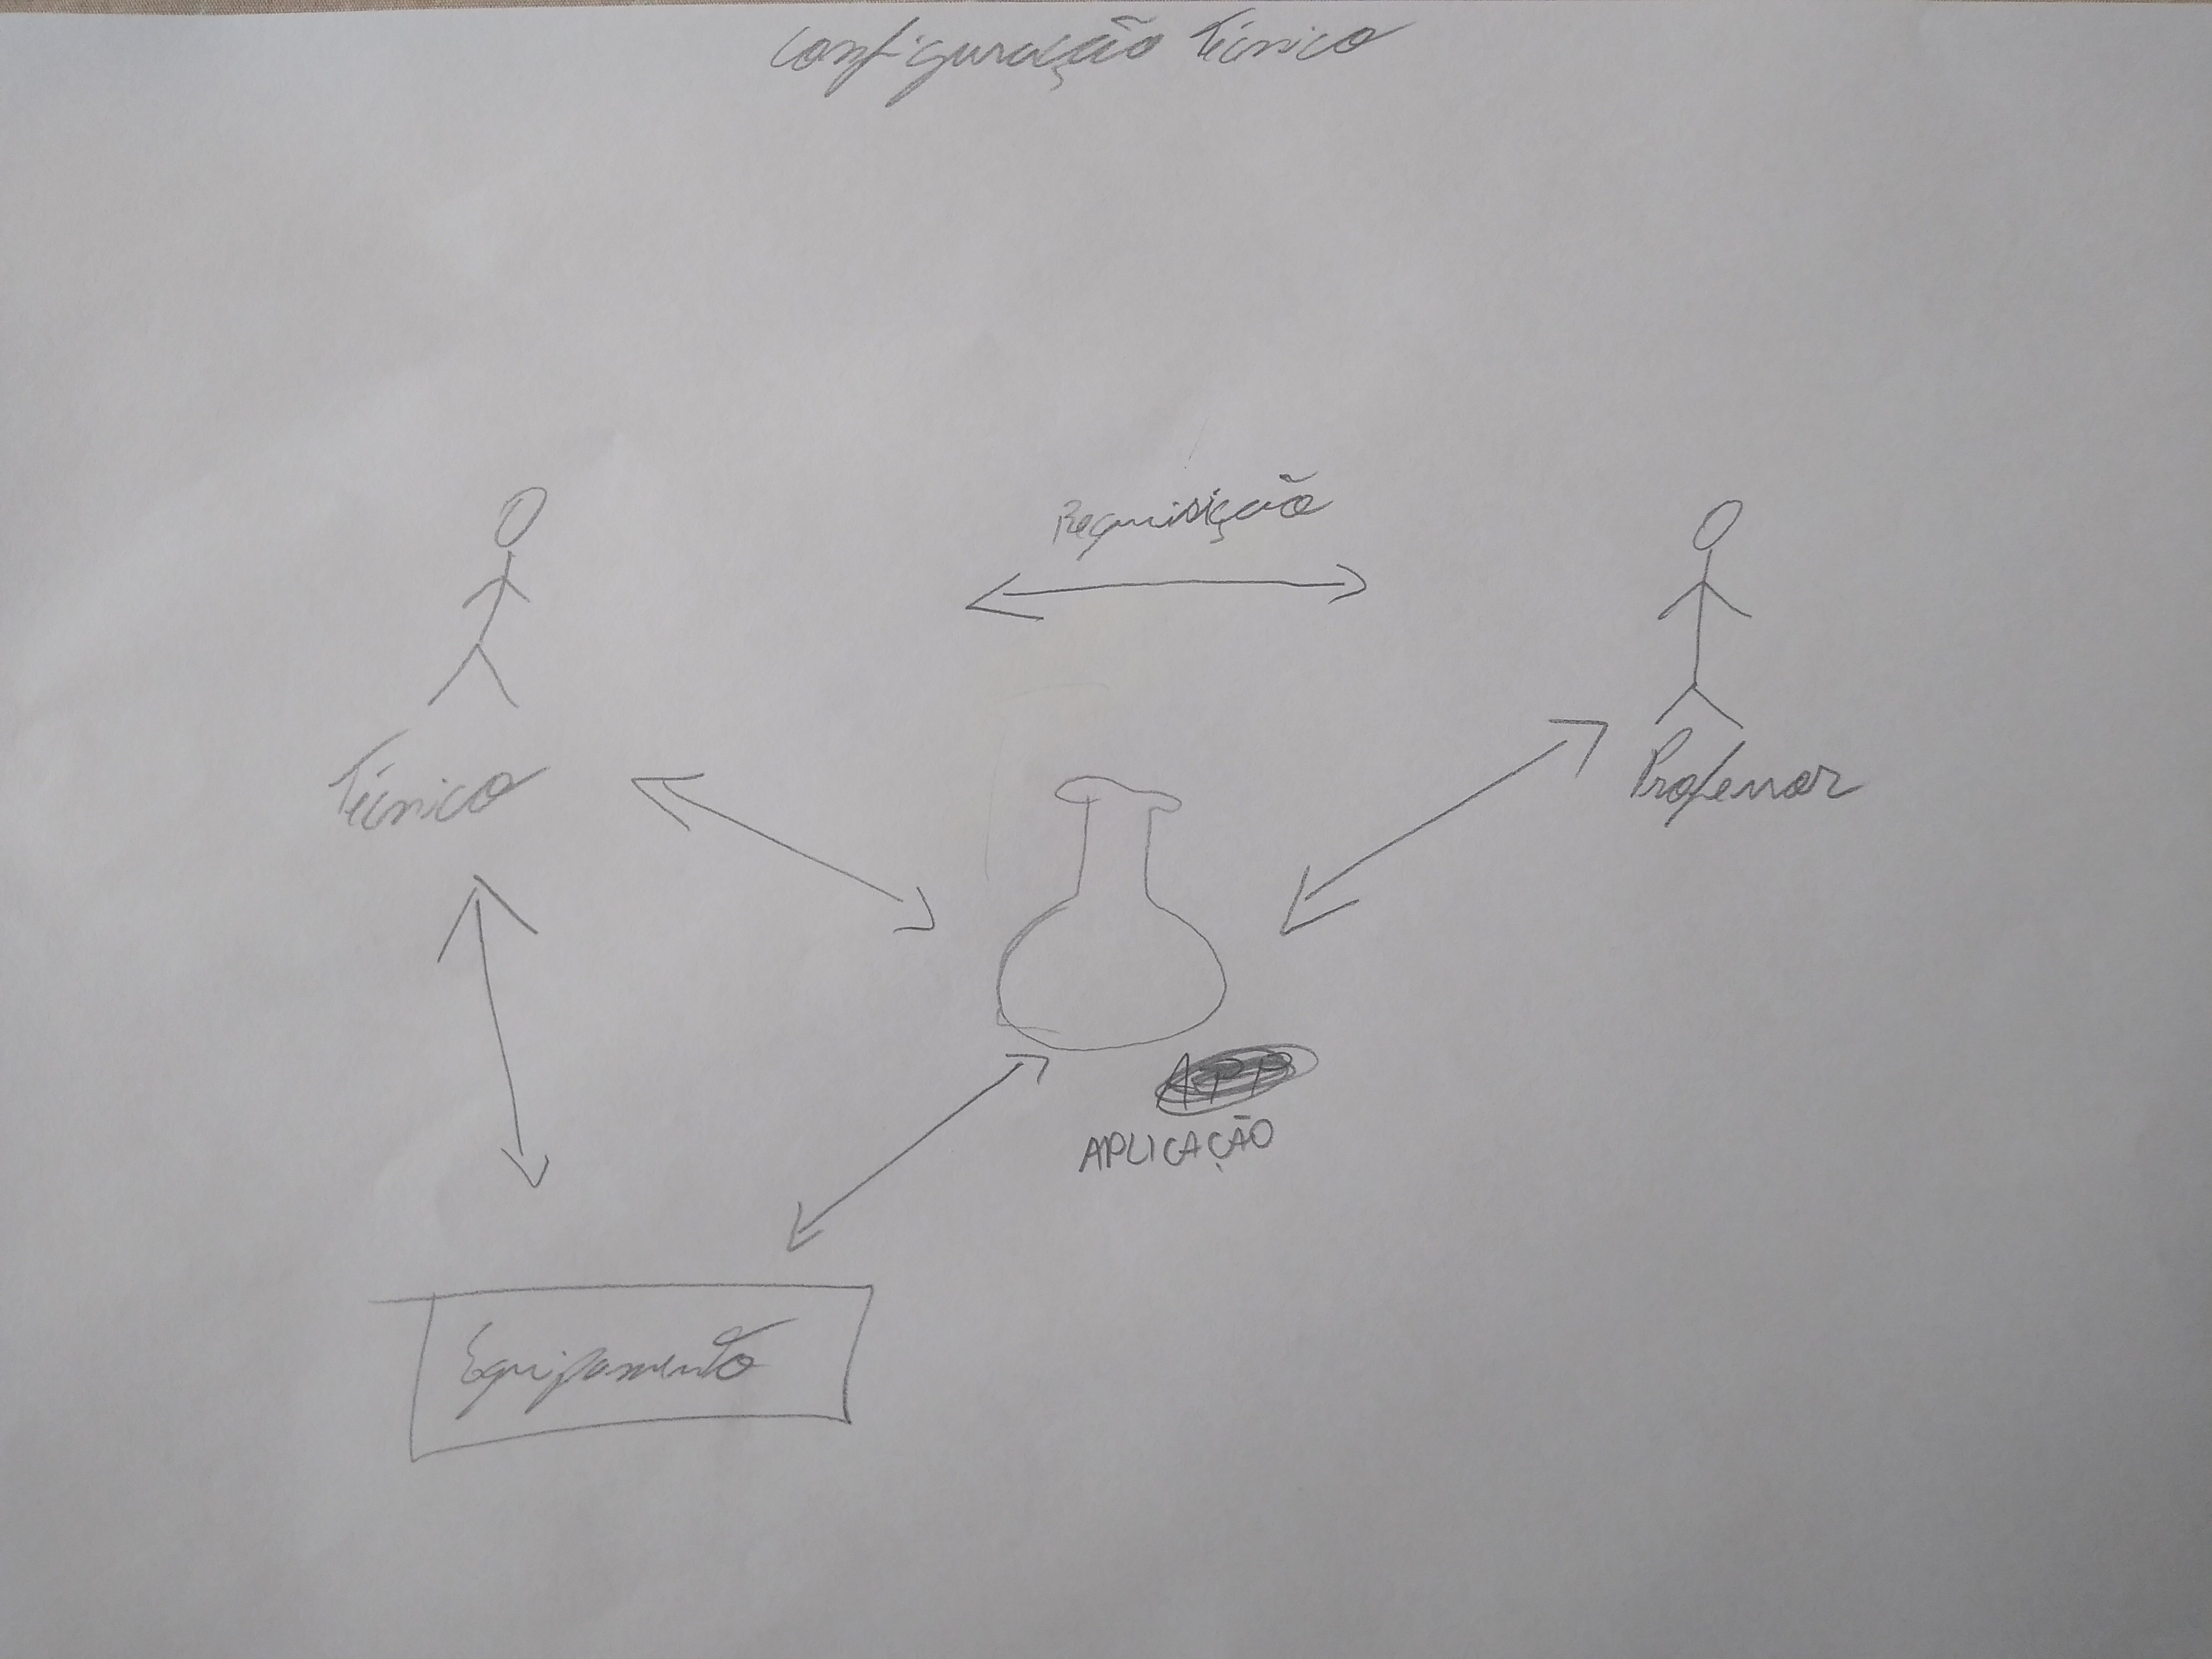 Configuração Técnico
Requisição
Técnico
Professor
APP
APLICAÇÃO
Equipamento